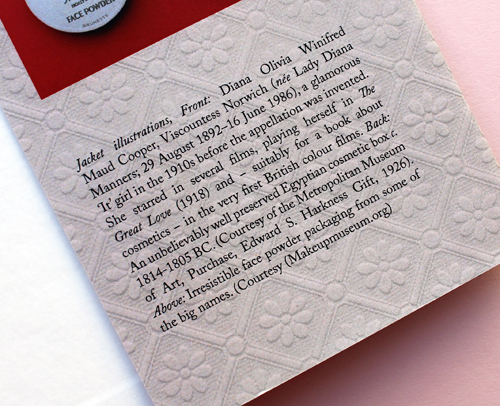 FACE POWDER
Jacket illustrations, Front: Diana Olivia Winifred
Maud Cooper, Viscountess Norwich (née Lady Diana
Manners, 29 August 1892–16 June 1986), a glamorous
'It' girl in the 1910s before the appellation was invented.
She starred in several films, playing herself in The
Great Love (1918) and – suitably for a book about
cosmetics – in the very first British colour films. Back:
An unbelievably well preserved Egyptian cosmetic box c.
1814-1805 BC. (Courtesy of the Metropolitan Museum
of Art, Purchase, Edward S. Harkness Gift, 1926).
Above: Irresistible face powder packaging from some of
the big names. (Courtesy (Makeupmuseum.org)